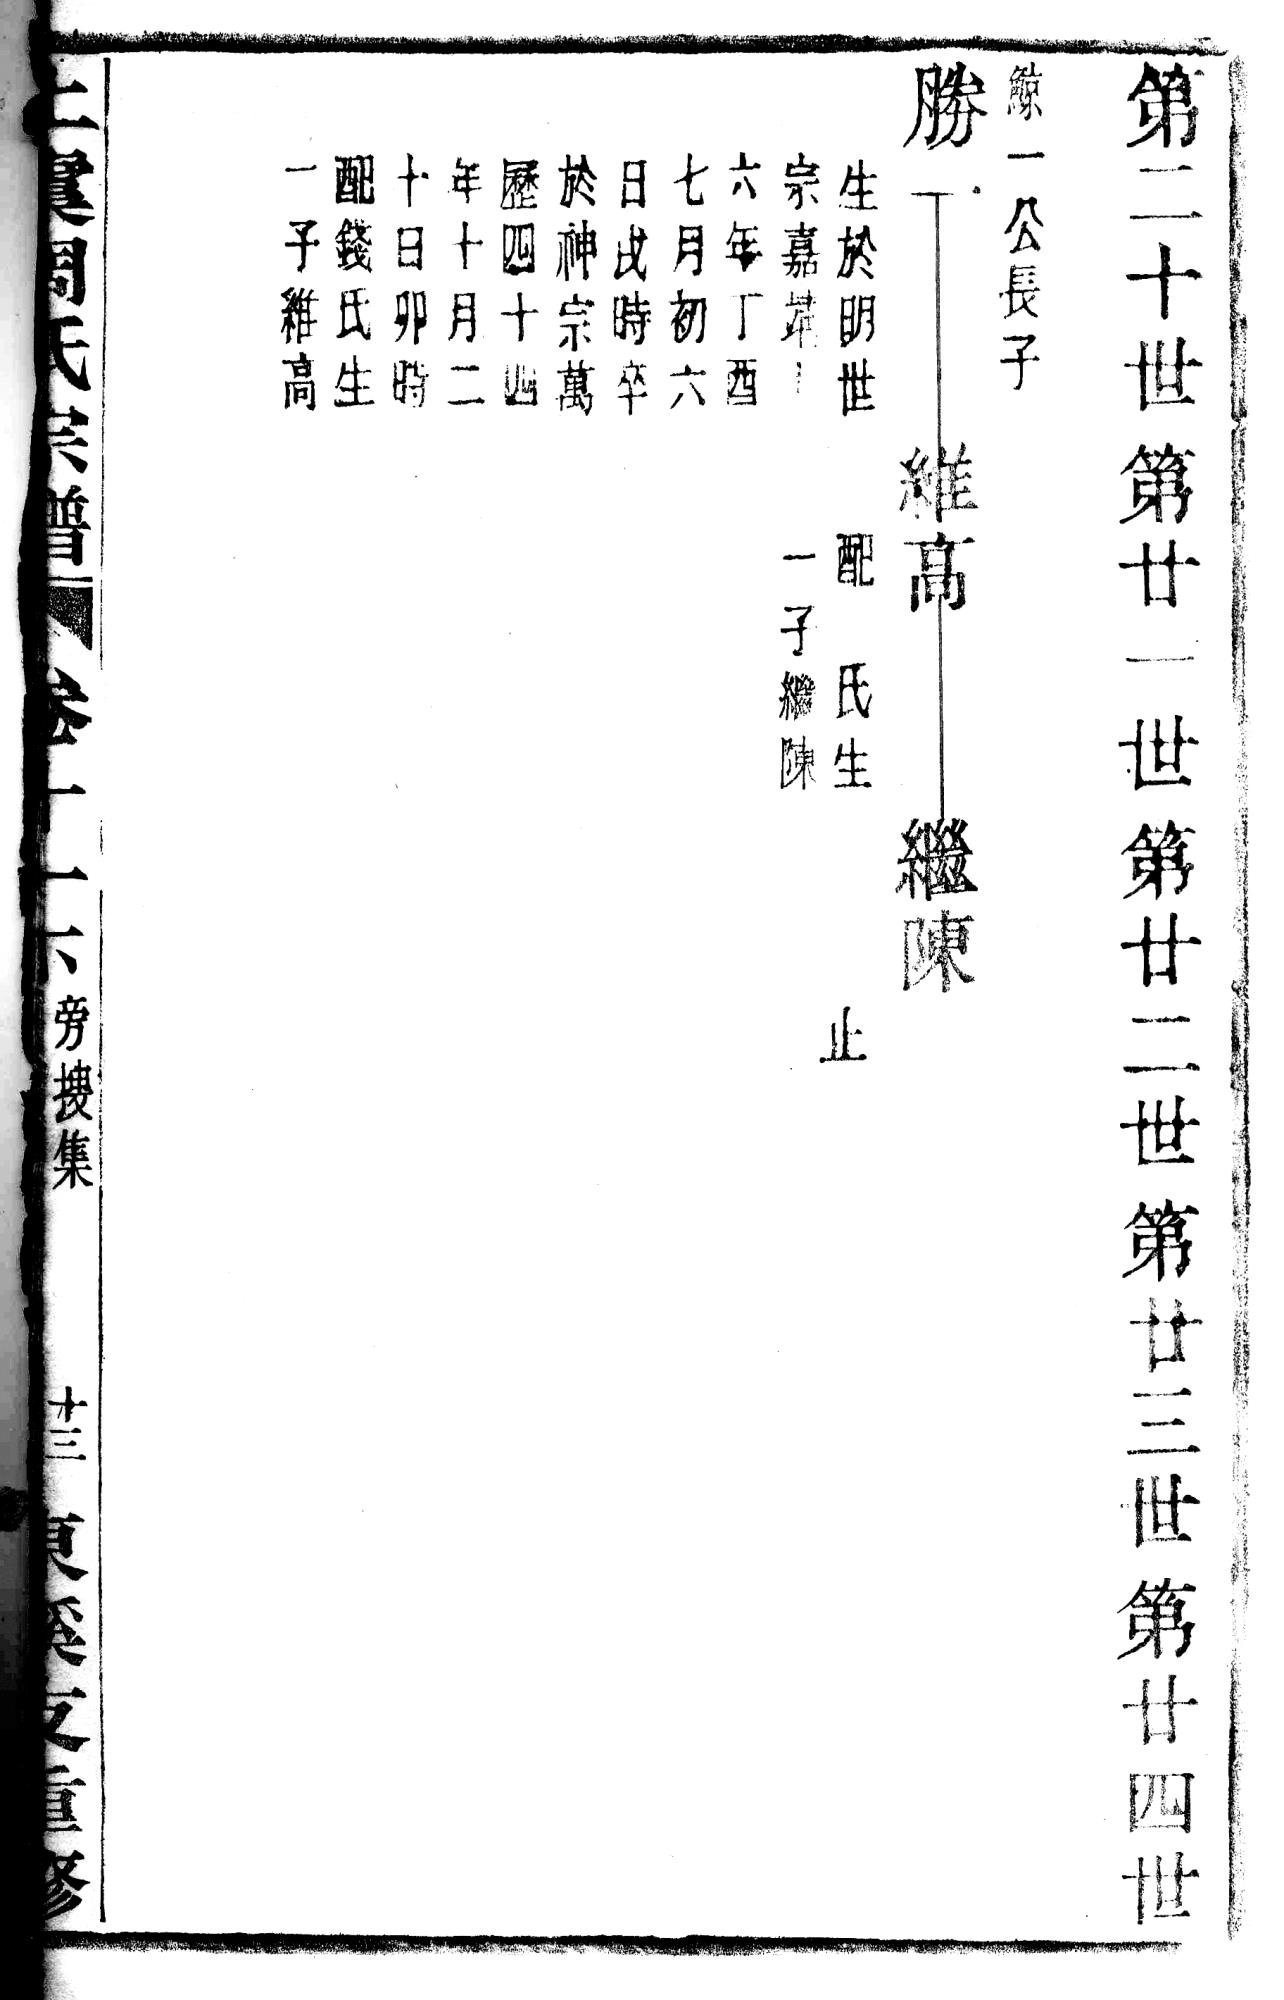 第二十世第廿一世第廿二世第廿三世第廿四世
鯨一公長子
勝一
生於明世
宗嘉靖十
六年丁酉
七月初六
日戌時卒
於神宗萬
歷四十四
年十月二
十日卯時
配錢氏生
一子維高
維高
配 氏生
一子繼陳
繼陳
止
上虞周氏宗譜 卷十六 旁搜集 十三 重修